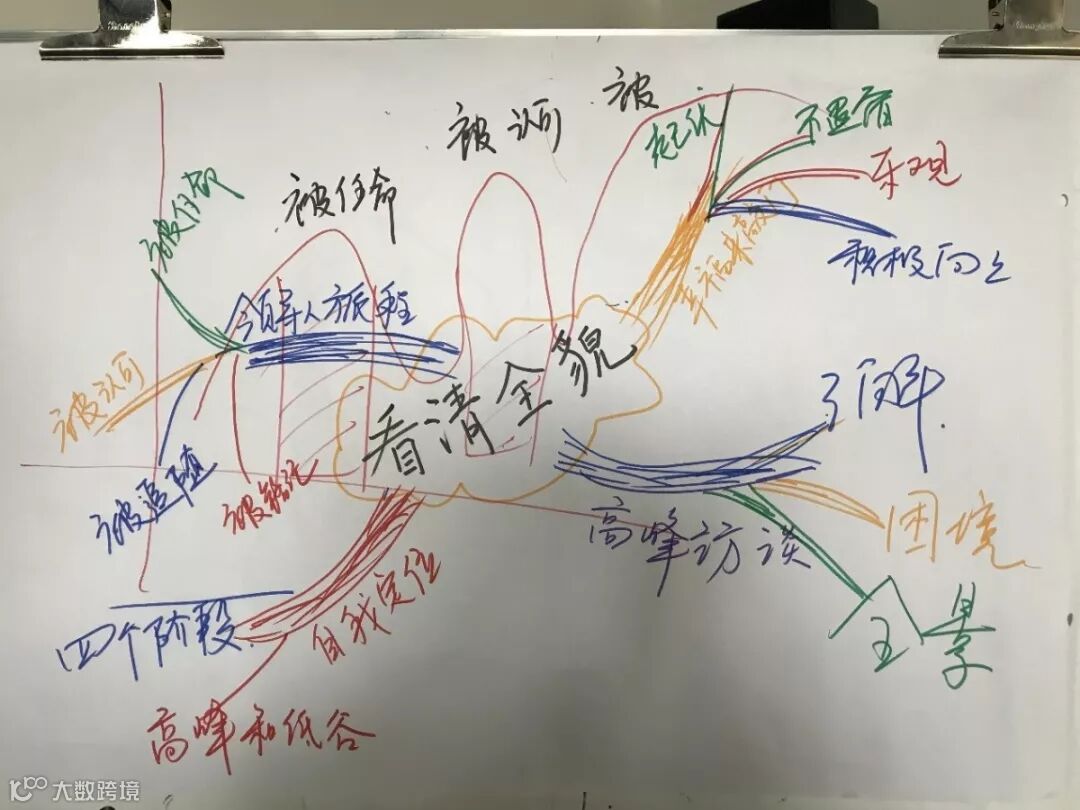 被认可
被
被任命
被任命
起伏
不遗憾
乐观
积极向上
幸福来敲门
领导人旅程
被认可
被追随
看清全貌
了解
困境
全景
高峰访谈
自我定位
四个阶段
高峰和低谷
大数跨境